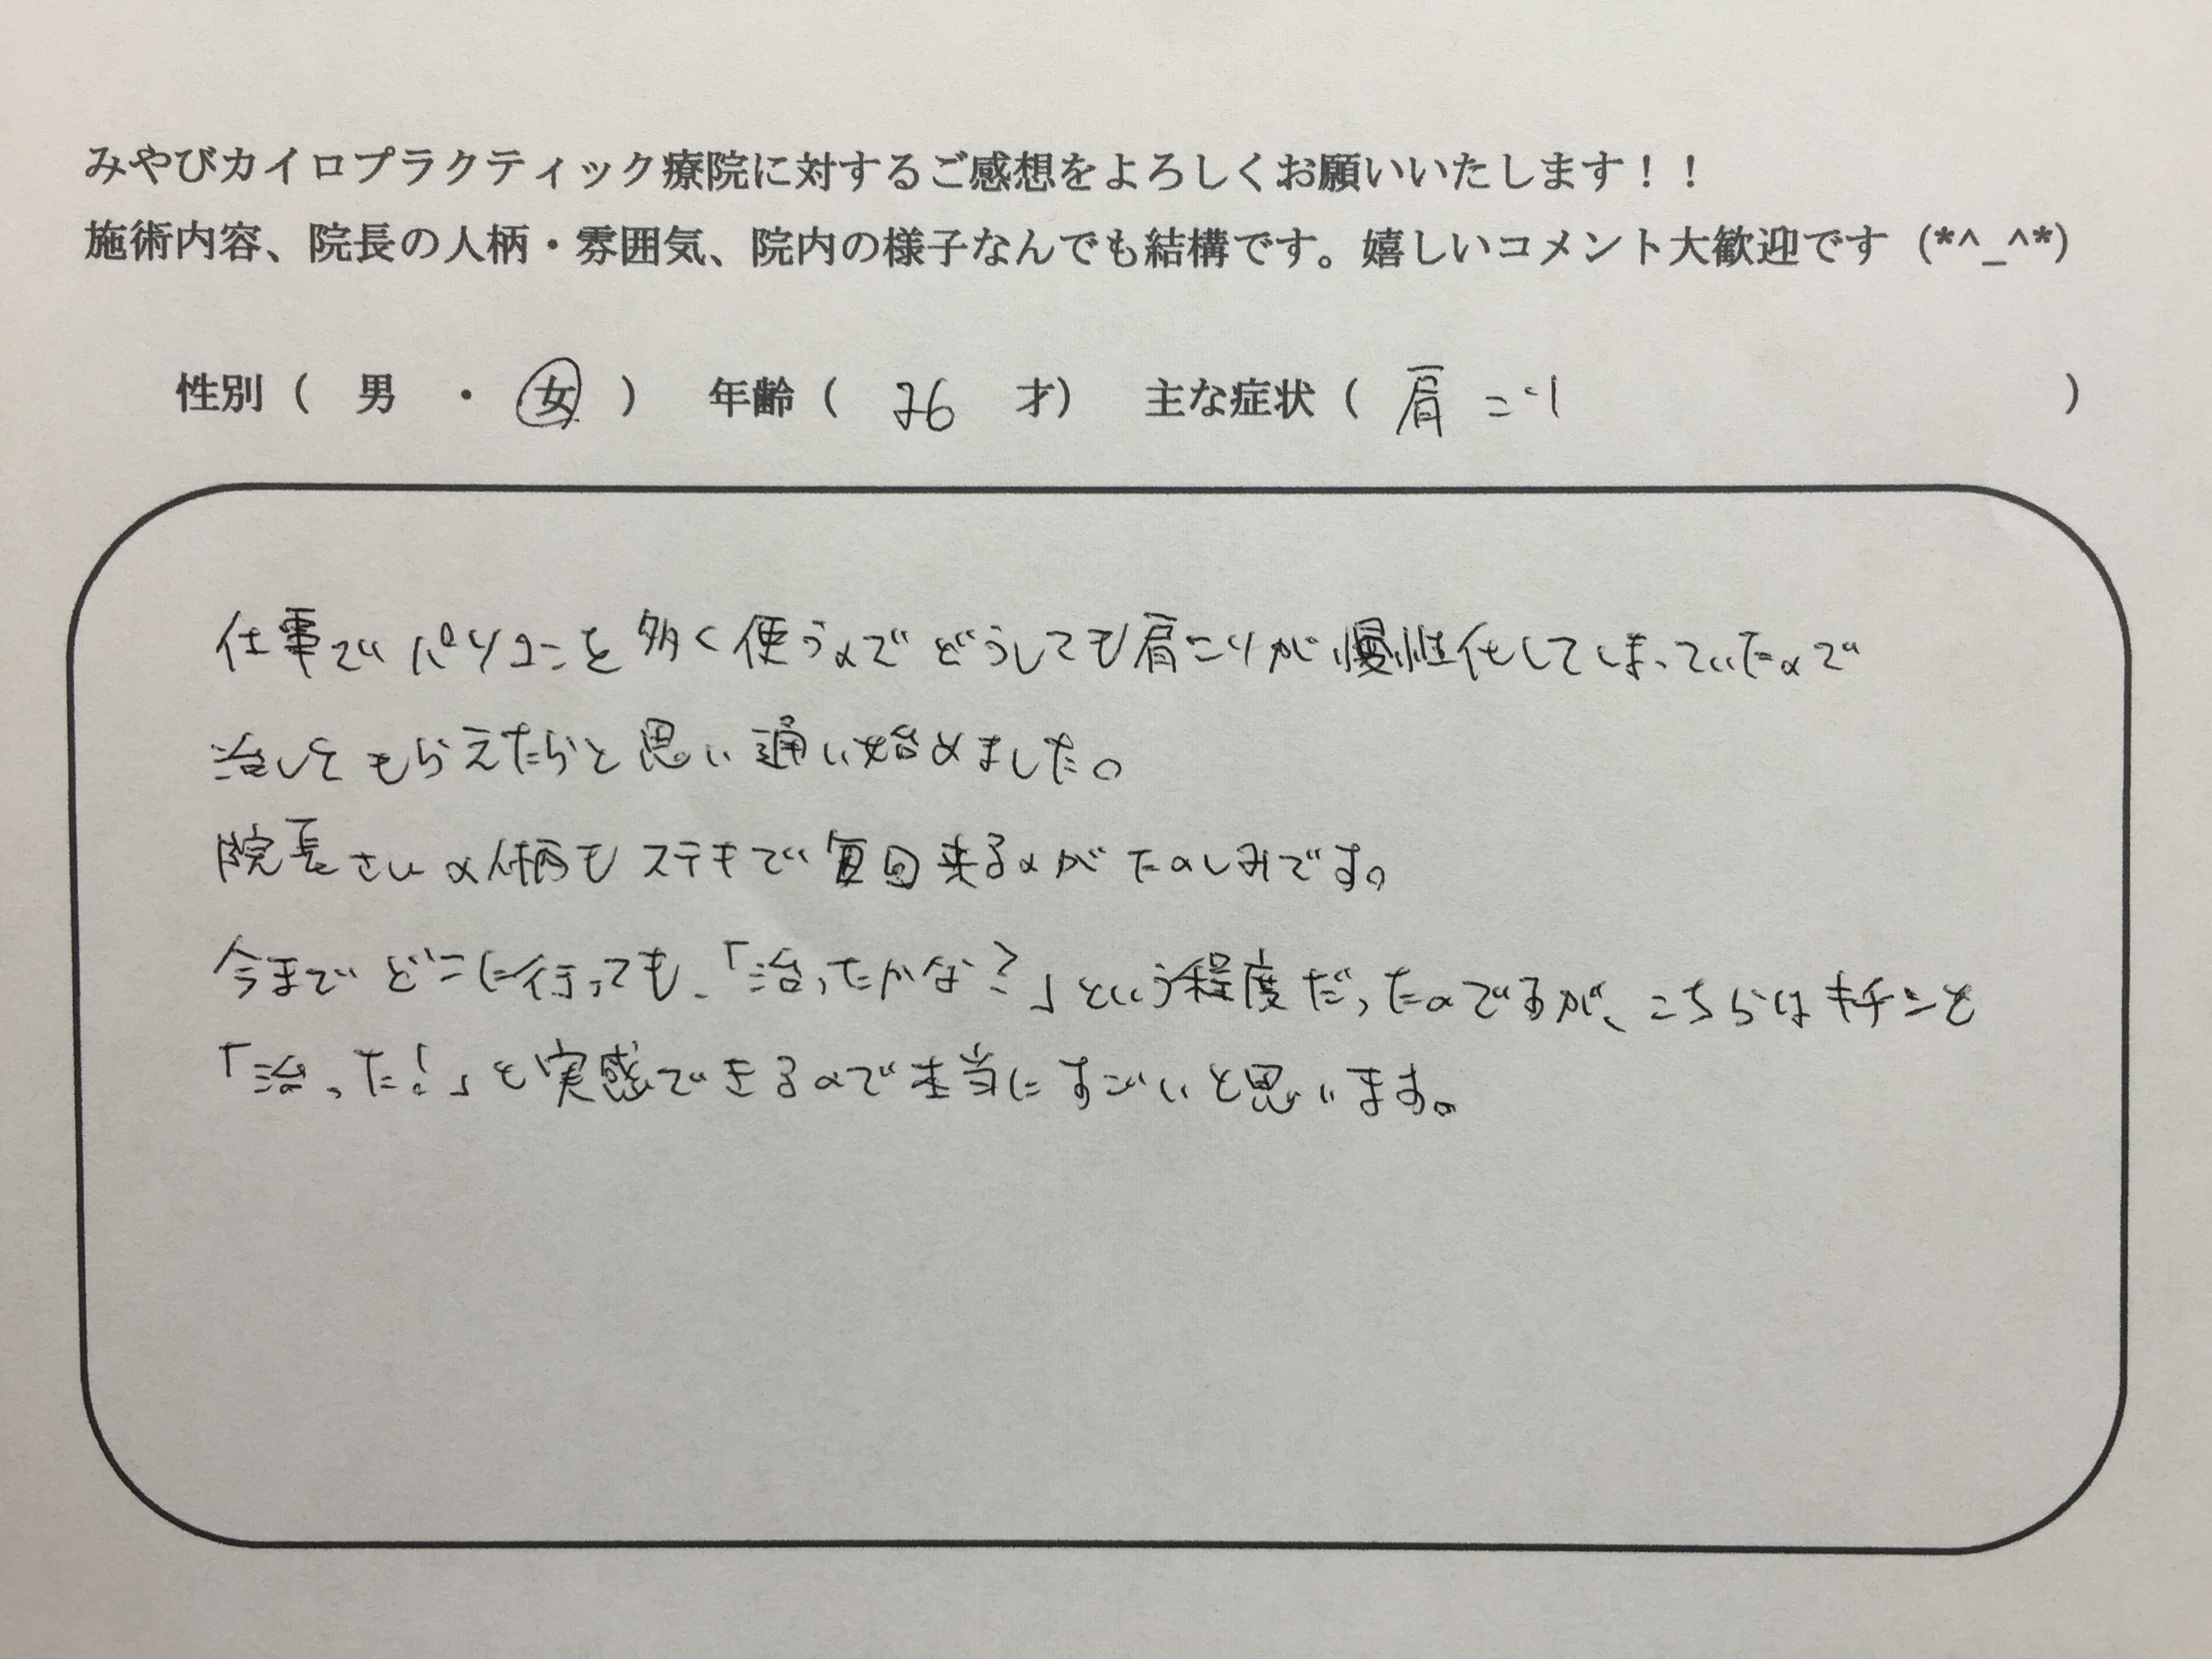 みやびカイロプラクティック療院に対するご感想をよろしくお願いいたします！！
施術内容、院長の人柄・雰囲気、院内の様子なんでも結構です。嬉しいコメント大歓迎です (*^_^*)
性別（ 男 ・ 女 ） 年齢（ 26 才） 主な症状（ 肩こり ）
仕事でパソコンを多く使うのでどうしても肩こりが慢性化してしまっていたので
治してもらえたらと思い通い始めました。
院長さんの人柄もステキで毎回来るのがたのしみです。
今までどこに行っても、「治ったかな？」という程度だったのですが、こちらはキチンと
「治った！」と実感できるので本当にすごいと思います。